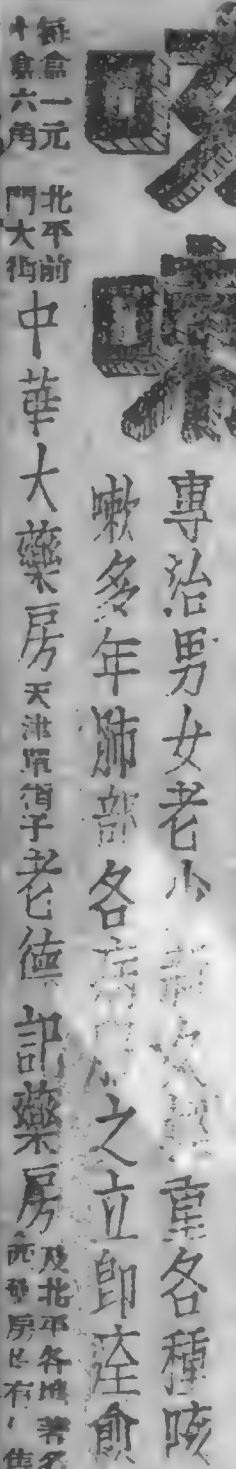 咳
嗽
專治男女老少新久輕重各種咳
嗽多年肺部各病服之立卽痊愈
每盒一元
十盒六角
北平前
門大街
中華大藥房
天津單街子
老德記藥房
及北平各埠著名
西藥房均有售